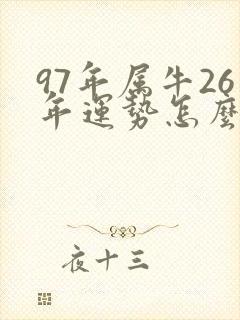 97年属牛26
年運勢怎麽
夜十三